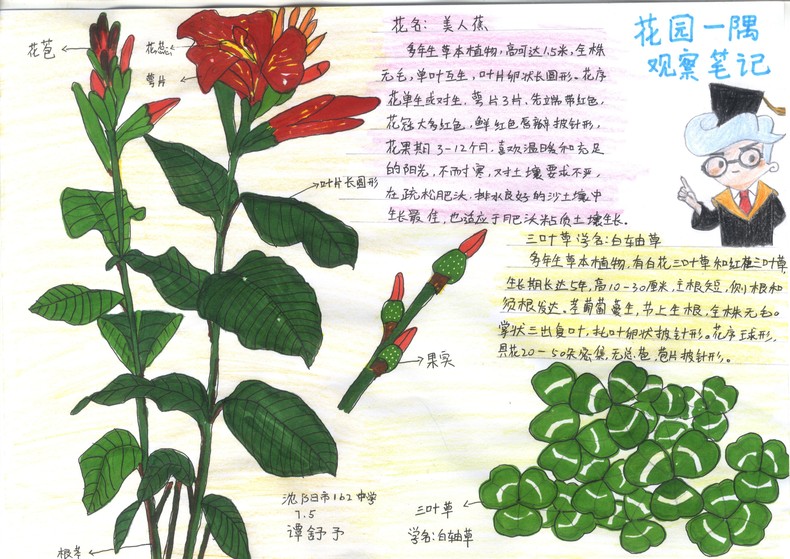 花园一隅
观察笔记
花名：美人蕉
多年生草本植物，高可达1.5米，全株
无毛，单叶互生，叶片卵状长圆形。花序
花单生或对生，萼片3片，先端带红色，
花冠大多红色，鲜红色唇瓣披针形，
花果期3-12个月，喜欢温暖和充足
的阳光，不耐寒，对土壤要求不严，
在疏松肥沃、排水良好的沙土壤中
生长最佳，也适应于肥沃粘质土壤生长。
三叶草学名：白轴草
多年生草本植物，有白花三叶草和红花三叶草，
生长期长达5年，高10-30厘米，主根短，侧根和
须根发达。茎匍匐蔓生，节上生根，全株无毛。
掌状三出复叶，托叶卵状披针形。花序球形，
具花20-50朵密集，无总苞，苞片披针形。
花苞
花蕊
萼片
叶片长圆形
果实
根茎
三叶草
学名：白轴草
沈阳市162中学
7.5
谭舒予